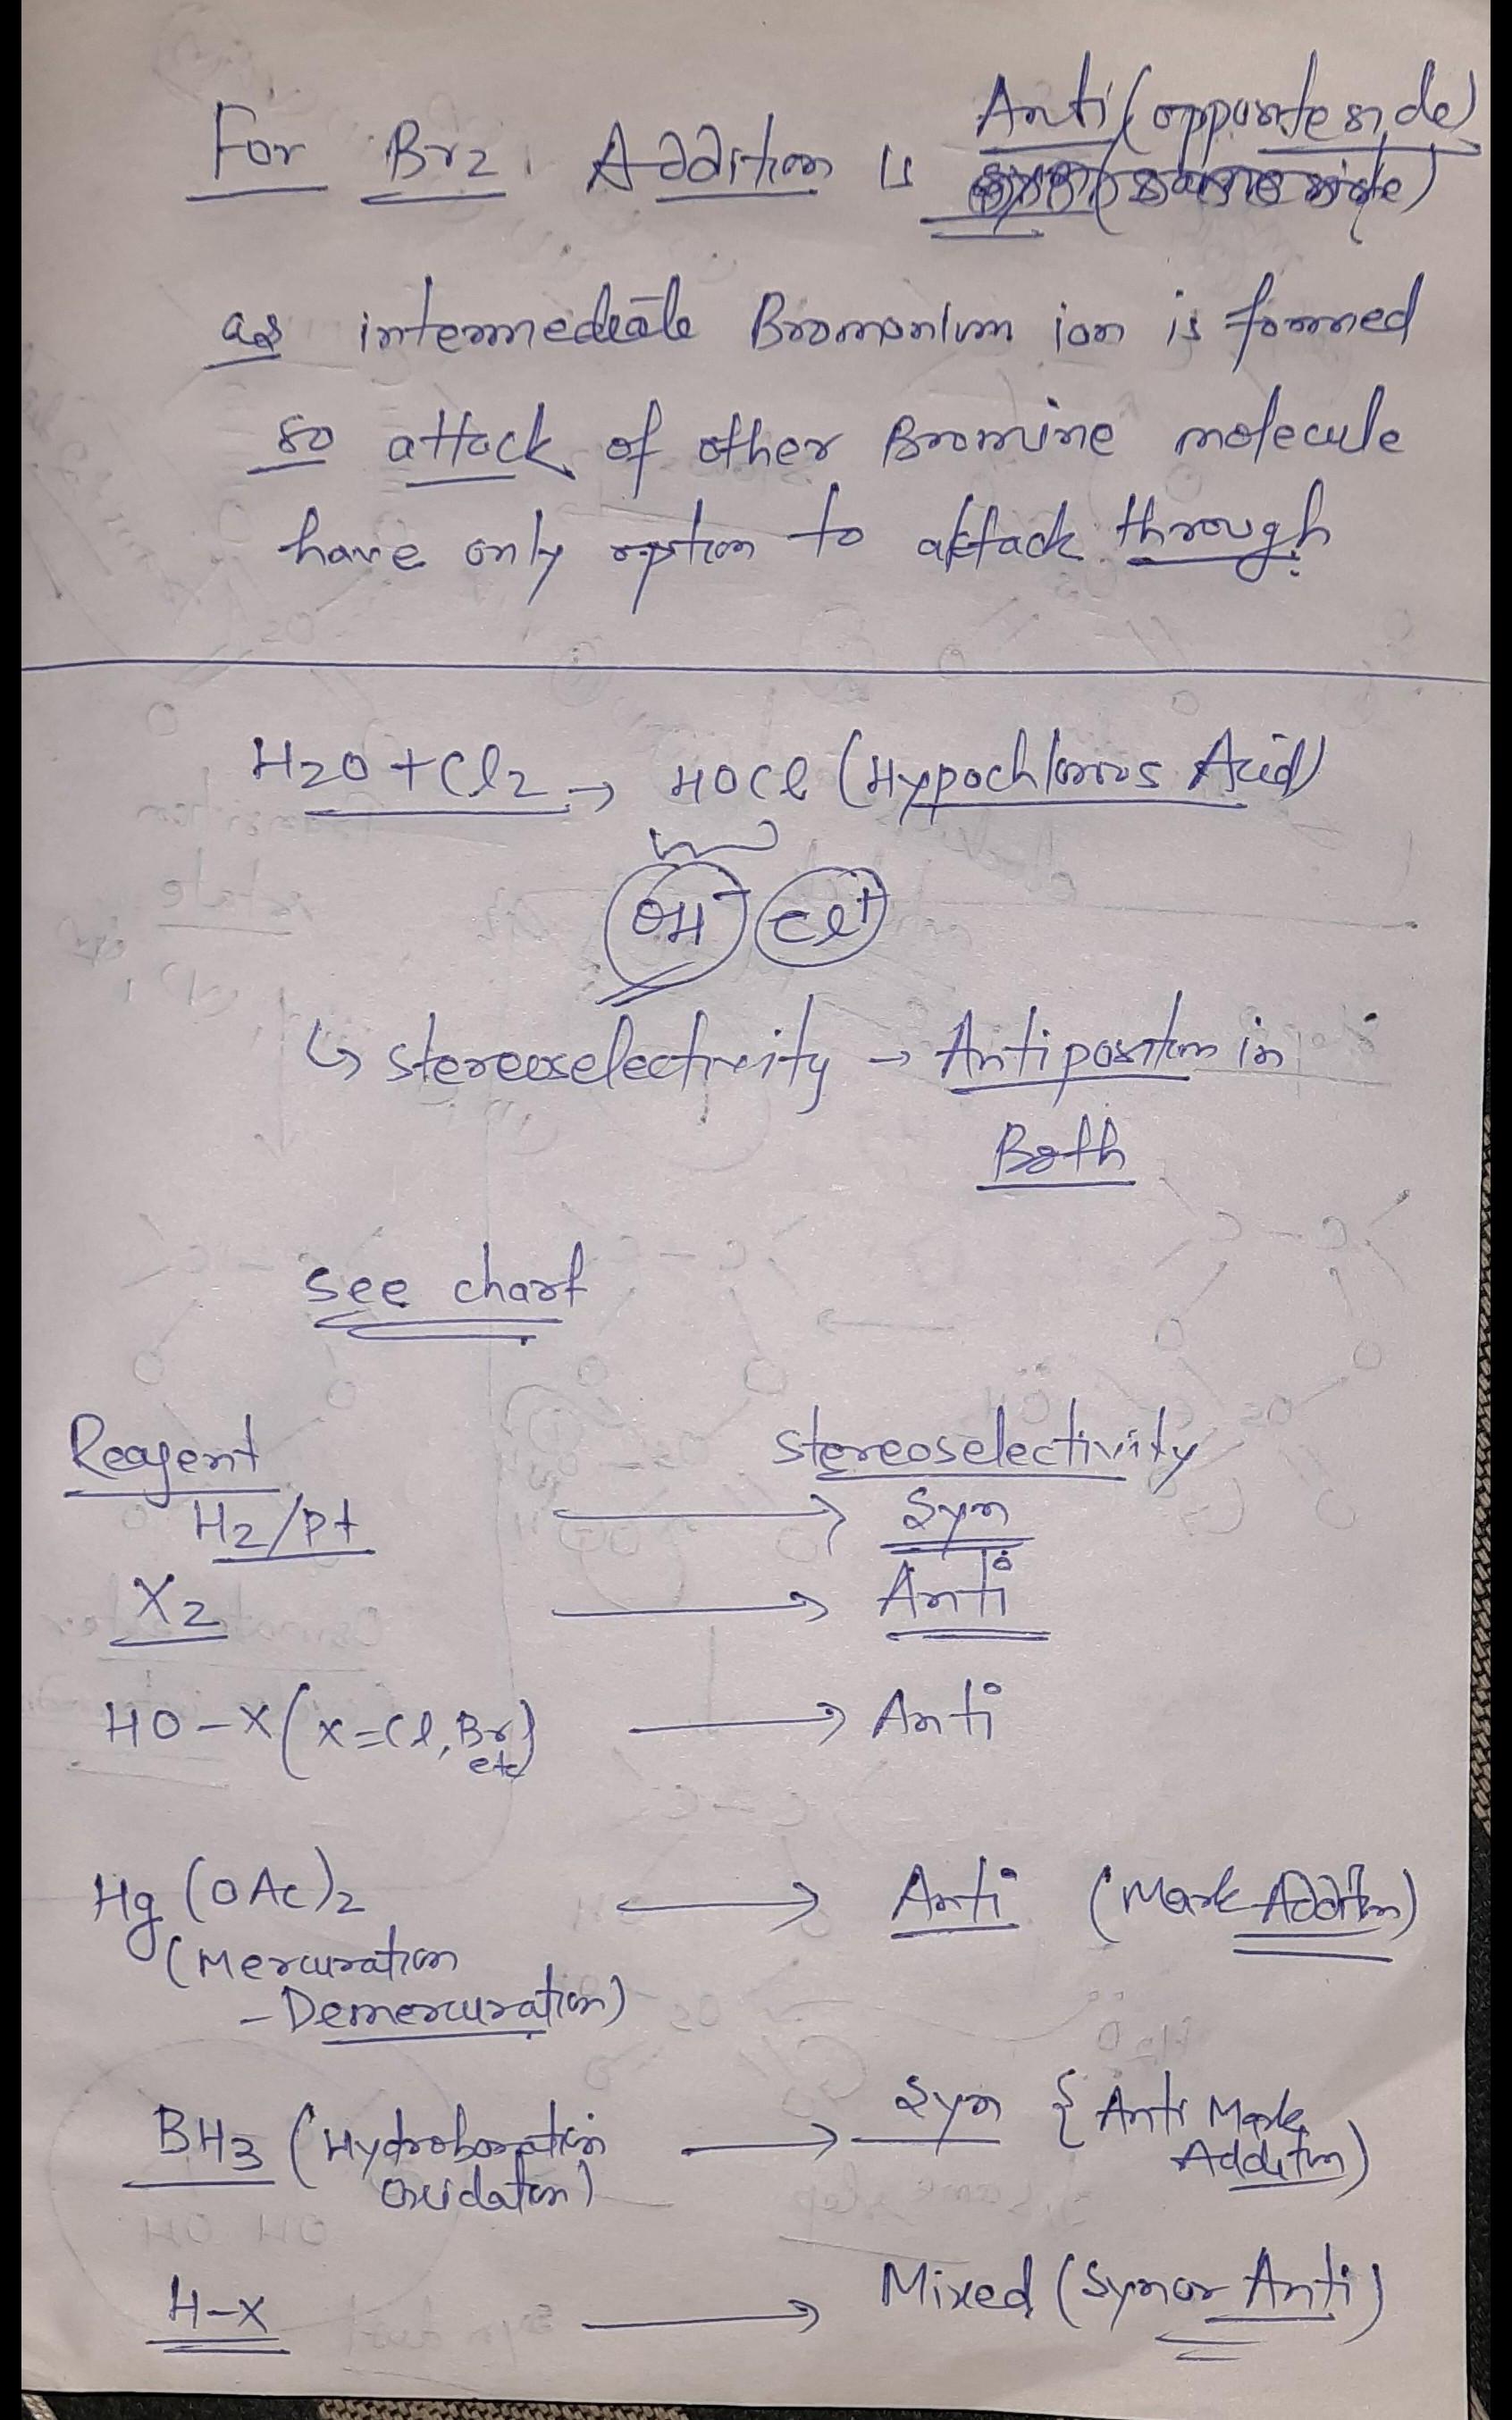 For Br2. Addition is Anti (opposite side)
as intermediate Bromonium ion is formed
so attack of other Bromine molecule
have only option to attack through.
H2O + Cl2 → HOCl (Hypochlorous Acid)
OH- Cl+
↳ stereoselectivity → Anti position in
Both
see chart
Reagent stereoselectivity
H2/Pt → Syn
X2 → Anti
HO-X (X=Cl, Br etc) → Anti
Hg(OAc)2 → Anti (Mark Addition)
(Mercuration
- Demercuration)
BH3 (Hydroboration → Syn { Anti Mark
Oxidation) Addition)
H-X → Mixed (Syn or Anti)